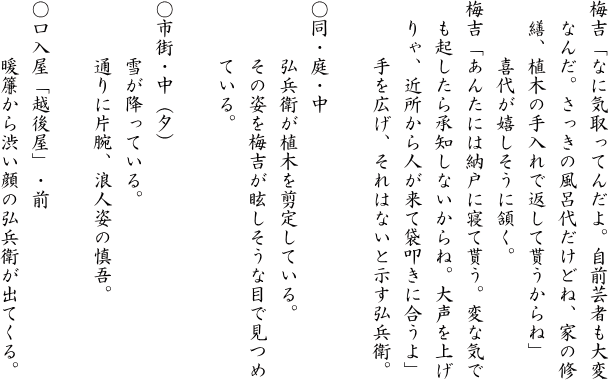 梅吉「なに気取ってんだよ。自前芸者も大変
なんだ。さっきの風呂代だけどね、家の修
繕、植木の手入れで返して貰うからね」
喜代が嬉しそうに頷く。
梅吉「あんたには納戸に寝て貰う。変な気で
も起したら承知しないからね。大声を上げ
りゃ、近所から人が来て袋叩きに合うよ」
手を広げ、それはないと示す弘兵衛。
〇同・庭・中
弘兵衛が植木を剪定している。
その姿を梅吉が眩しそうな目で見つめ
ている。
〇市街・中（夕）
雪が降っている。
通りに片腕、浪人姿の慎吾。
〇口入屋「越後屋」・前
暖簾から渋い顔の弘兵衛が出てくる。